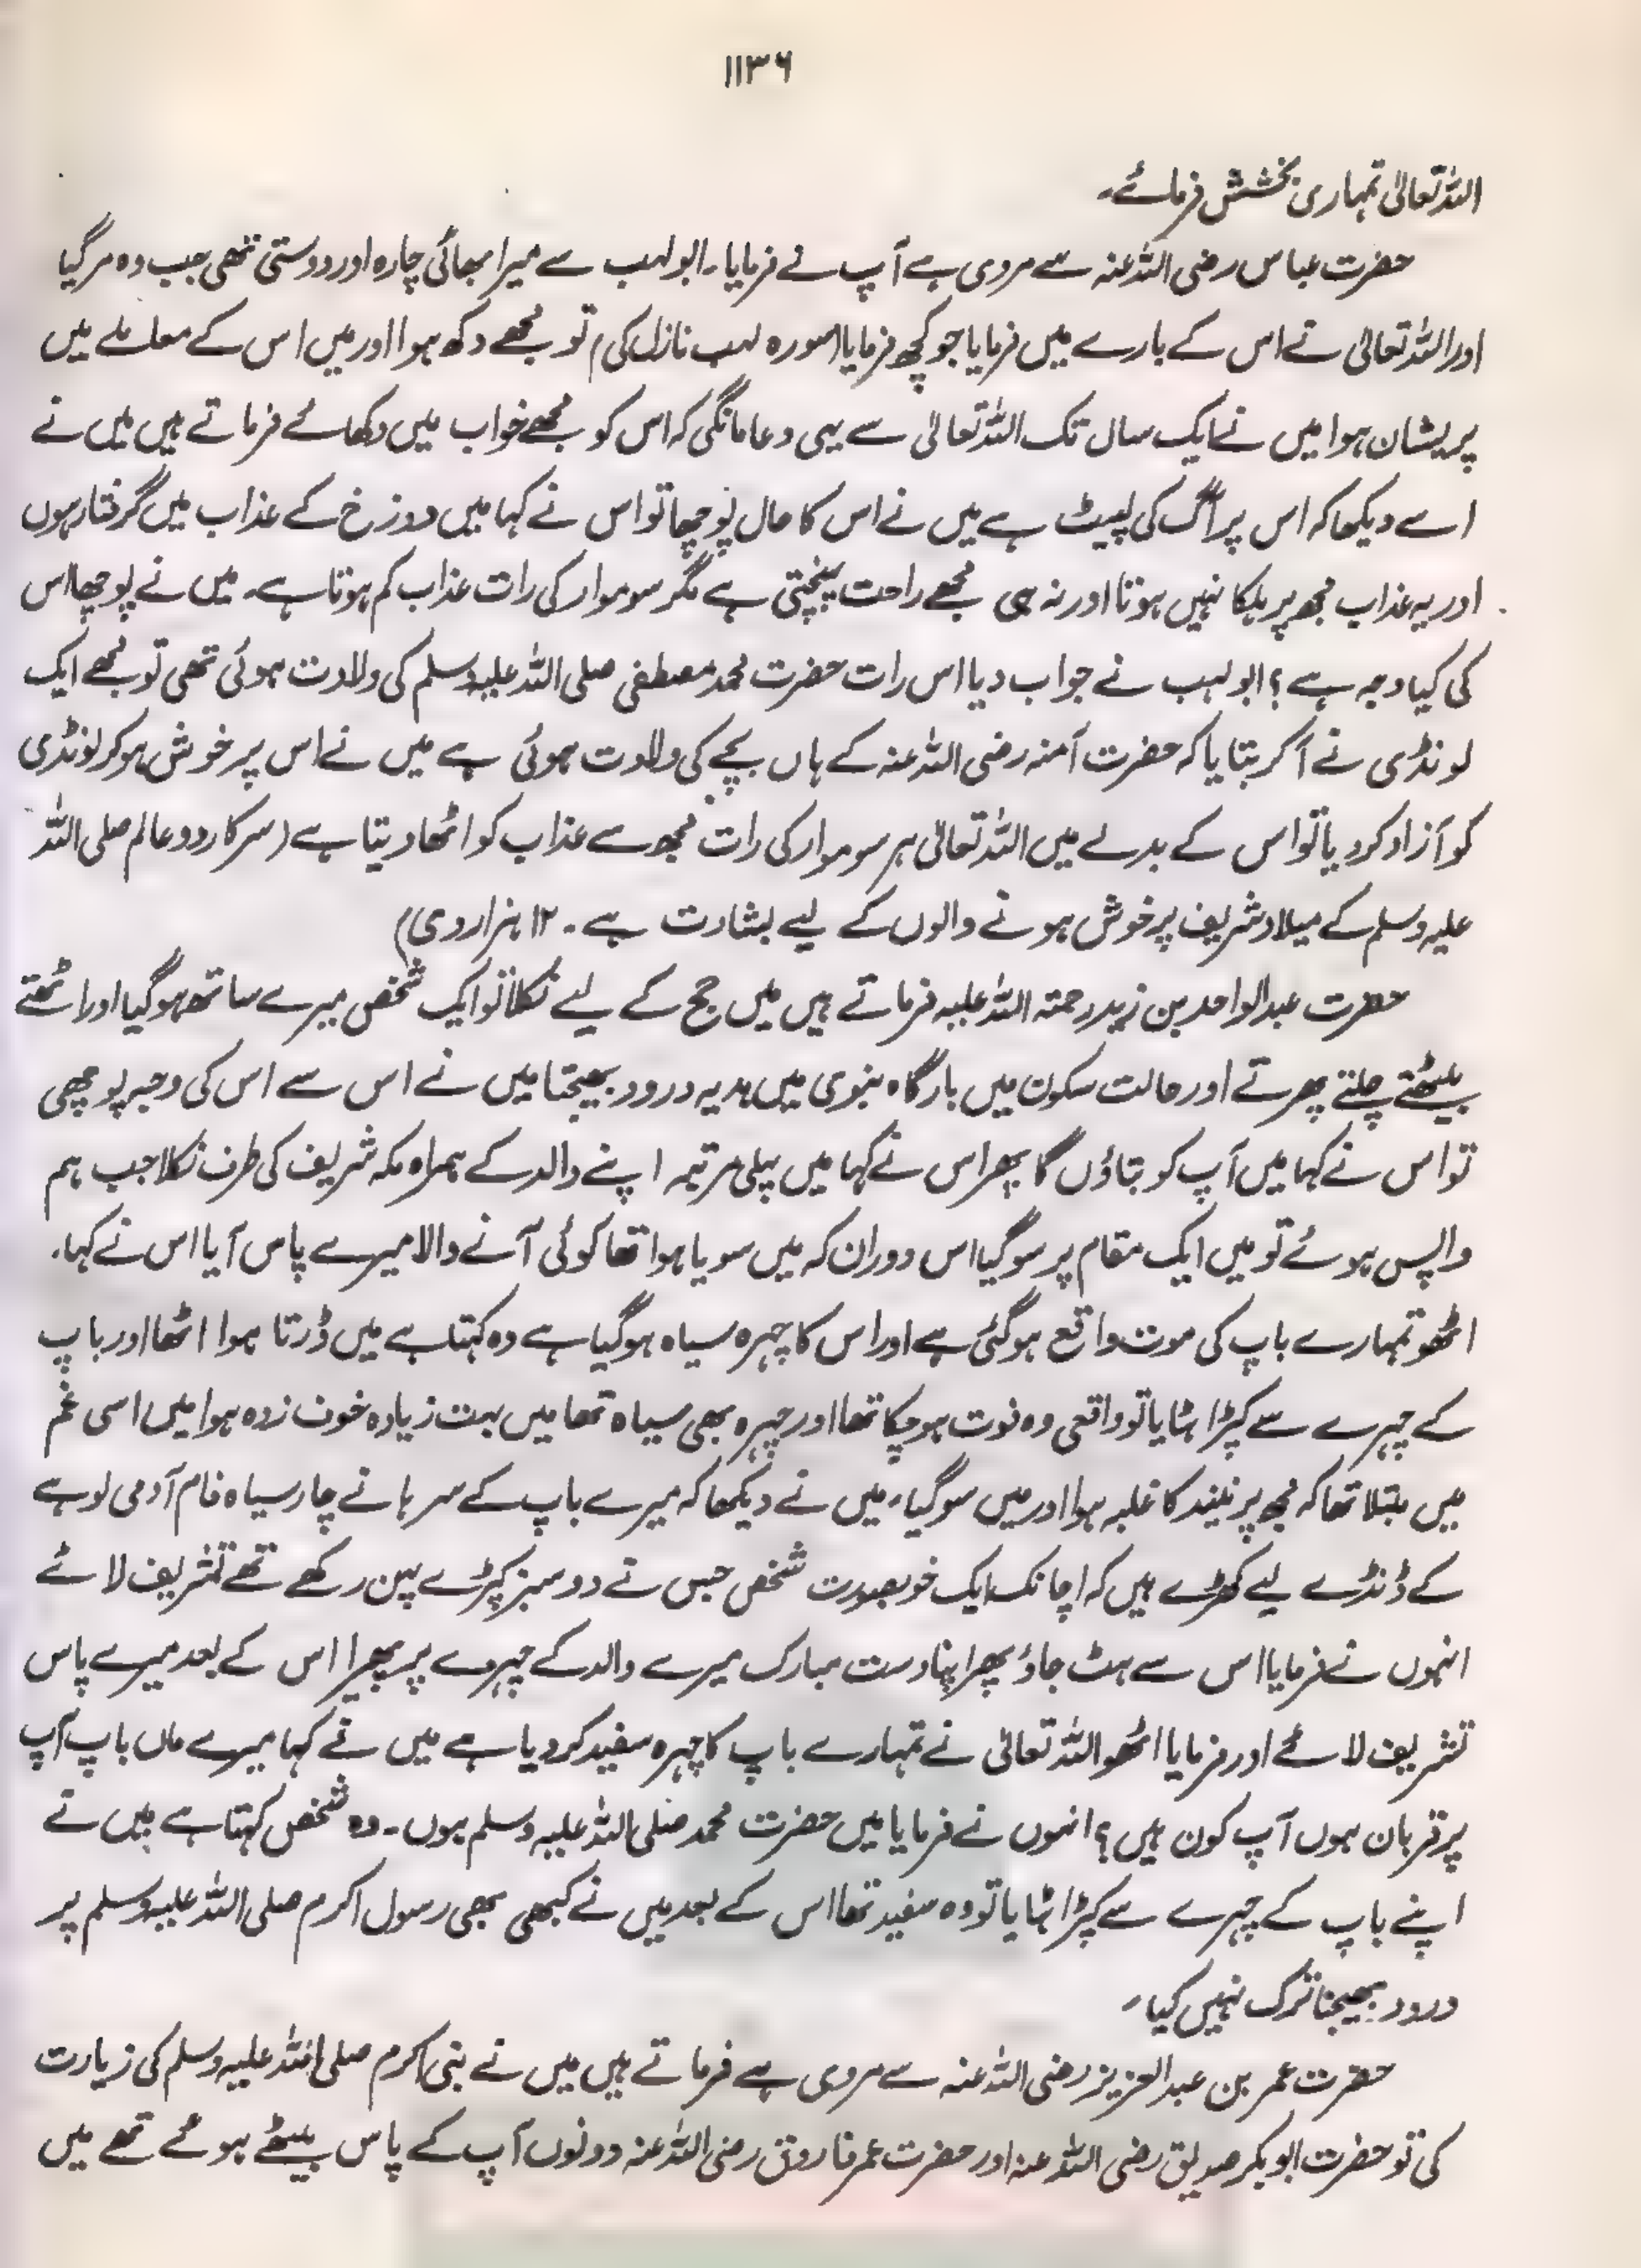 ۱۱۳۶
اللہ تعالیٰ تمہاری بخشش فرمائے۔
حضرت عباس رضی اللہ عنہ سے مروی ہے آپ نے فرمایا۔ ابولہب سے میرا بھائی چارہ اور دوستی تھی جب وہ مر گیا
اور اللہ تعالیٰ نے اس کے بارے میں فرمایا جو کچھ فرمایا (سورہ لہب نازل کی) تو مجھے دکھ ہوا اور میں اس کے معاملے میں
پریشان ہوا میں نے ایک سال تک اللہ تعالیٰ سے یہی دعا مانگی کہ اس کو مجھے خواب میں دکھائے فرماتے ہیں میں نے
اسے دیکھا کہ اس پر آگ کی لپیٹ ہے میں نے اس کا حال پوچھا تو اس نے کہا میں دوزخ کے عذاب میں گرفتار ہوں
اور یہ عذاب مجھ پر ہلکا نہیں ہوتا اور نہ ہی مجھے راحت پہنچتی ہے مگر سوموار کی رات عذاب کم ہوتا ہے۔ میں نے پوچھا اس
کی کیا وجہ ہے؟ ابولہب نے جواب دیا اس رات حضرت محمد مصطفی صلی اللہ علیہ وسلم کی ولادت ہوئی تھی تو مجھے ایک
لونڈی نے آکر بتایا کہ حضرت آمنہ رضی اللہ عنہ کے ہاں بچے کی ولادت ہوئی ہے میں نے اس پر خوش ہو کر لونڈی
کو آزاد کر دیا تو اس کے بدلے میں اللہ تعالیٰ ہر سوموار کی رات مجھ سے عذاب کو اٹھا دیتا ہے (سرکار دو عالم صلی اللہ
علیہ وسلم کے میلاد شریف پر خوش ہونے والوں کے لیے بشارت ہے۔ ۱۲ ہزاروی)
حضرت عبدالواحد بن زید رحمتہ اللہ علیہ فرماتے ہیں میں حج کے لیے نکلا تو ایک شخص میرے ساتھ ہو گیا اور اٹھتے
بیٹھتے چلتے پھرتے اور حالت سکون میں بارگاہ نبوی میں ہدیہ درود بھیجتا میں نے اس سے اس کی وجہ پوچھی
تو اس نے کہا میں آپ کو بتاؤں گا پھر اس نے کہا میں پہلی مرتبہ اپنے والد کے ہمراہ مکہ شریف کی طرف نکلا جب ہم
واپس ہوئے تو میں ایک مقام پر سو گیا اس دوران کہ میں سویا ہوا تھا کوئی آنے والا میرے پاس آیا اس نے کہا۔
اٹھو تمہارے باپ کی موت واقع ہو گئی ہے اور اس کا چہرہ سیاہ ہو گیا ہے وہ کہتا ہے میں ڈرتا ہوا اٹھا اور باپ
کے چہرے سے کپڑا ہٹایا تو واقعی وہ فوت ہو چکا تھا اور چہرہ بھی سیاہ تھا میں بہت زیادہ خوف زدہ ہوا میں اسی غم
میں مبتلا تھا کہ مجھ پر نیند کا غلبہ ہوا اور میں سو گیا، میں نے دیکھا کہ میرے باپ کے سرہانے چار سیاہ فام آدمی لوہے
کے ڈنڈے لیے کھڑے ہیں کہ اچانک ایک خوبصورت شخص جس نے دو سبز کپڑے پہن رکھے تھے تشریف لائے
انہوں نے فرمایا اس سے ہٹ جاؤ پھر اپنا دست مبارک میرے والد کے چہرے پر پھیرا اس کے بعد میرے پاس
تشریف لائے اور فرمایا اٹھو اللہ تعالیٰ نے تمہارے باپ کا چہرہ سفید کر دیا ہے میں نے کہا میرے ماں باپ آپ
پر قربان ہوں آپ کون ہیں؟ انہوں نے فرمایا میں حضرت محمد صلی اللہ علیہ وسلم ہوں۔ وہ شخص کہتا ہے میں نے
اپنے باپ کے چہرے سے کپڑا ہٹایا تو وہ سفید تھا اس کے بعد میں نے کبھی بھی رسول اکرم صلی اللہ علیہ وسلم پر
درود بھیجنا ترک نہیں کیا۔
حضرت عمر بن عبدالعزیز رضی اللہ عنہ سے مروی ہے فرماتے ہیں میں نے نبی اکرم صلی اللہ علیہ وسلم کی زیارت
کی تو حضرت ابوبکر صدیق رضی اللہ عنہ اور حضرت عمر فاروق رضی اللہ عنہ دونوں آپ کے پاس بیٹھے ہوئے تھے میں